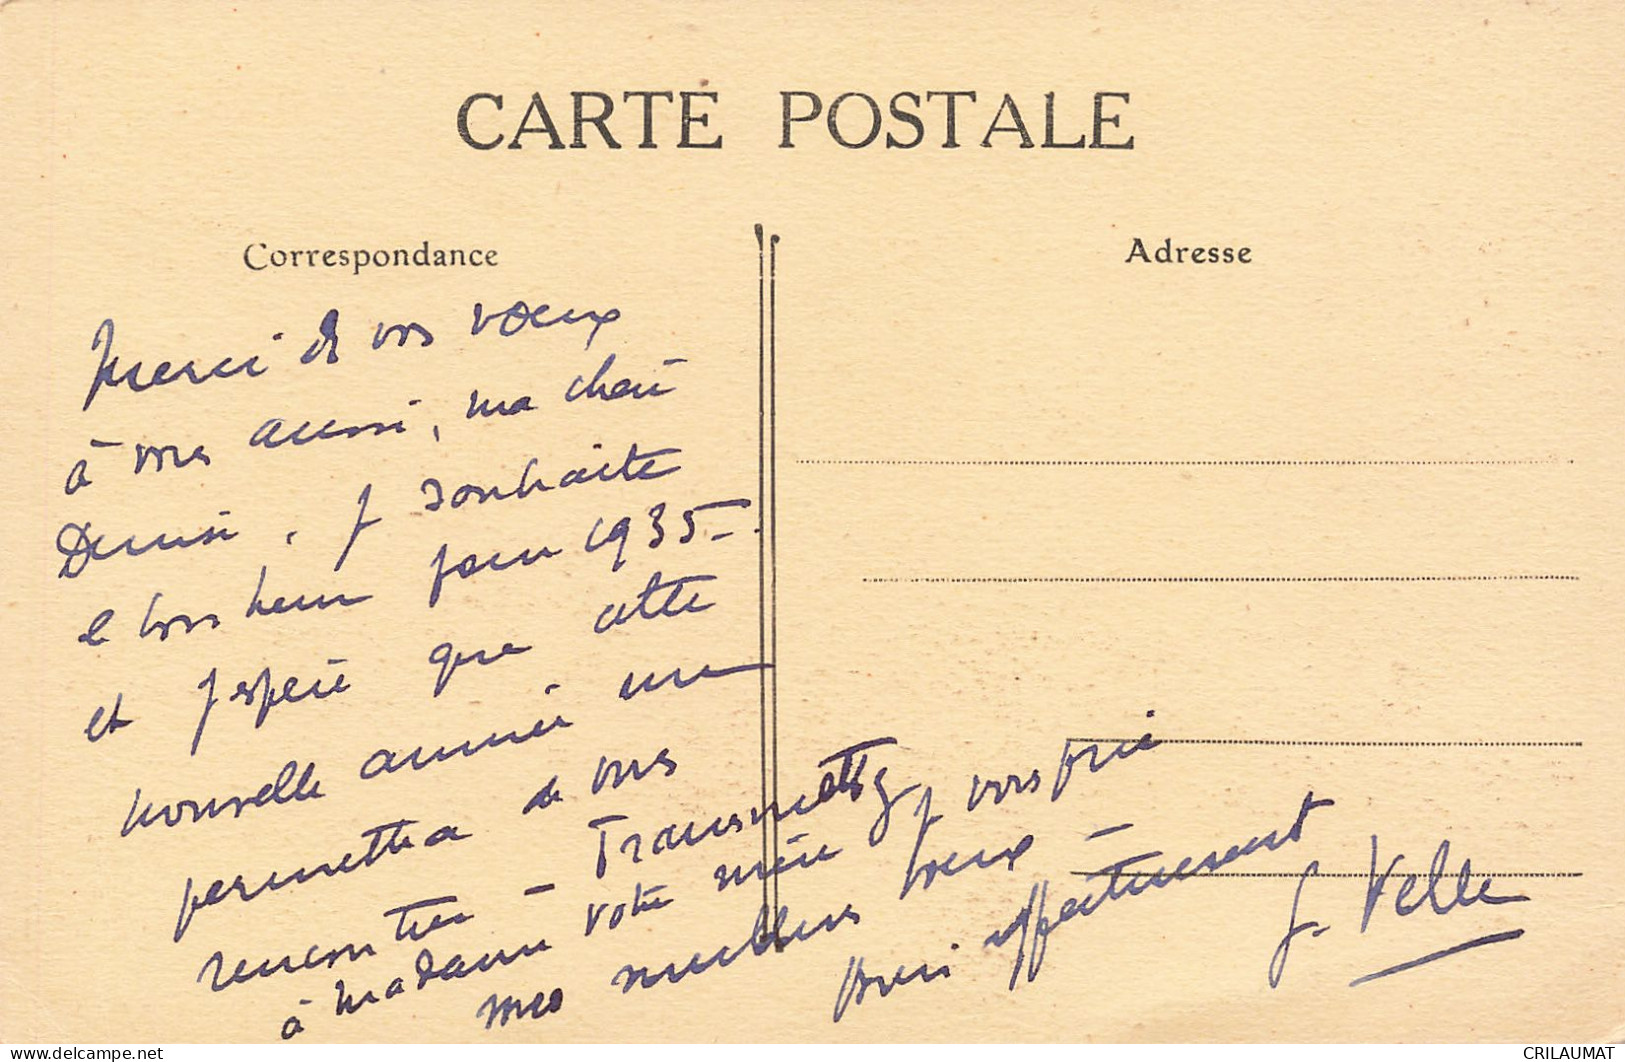 CARTE POSTALE
Correspondance
Adresse
Merci de vos voeux
à vous aussi, ma chère
Denise, je souhaite
le bonheur pour 1935 -
et j'espère que cette
nouvelle année me
permettra de vous
rencontrer - Transmettez
à madame votre mère je vous prie
mes meilleurs voeux -
Bien affectueusement
J. Velle
CRILAUMAT